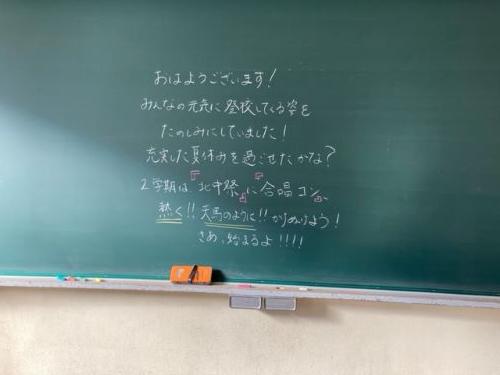 おはようございます！
みんなの元気に登校してくる姿を
たのしみにしていました！
充実した夏休みを過ごせたかな？
2学期は、「北中祭」に「合唱コン」、
熱く！！天馬のように！！かけぬけよう！
さあ、始まるよ！！！！